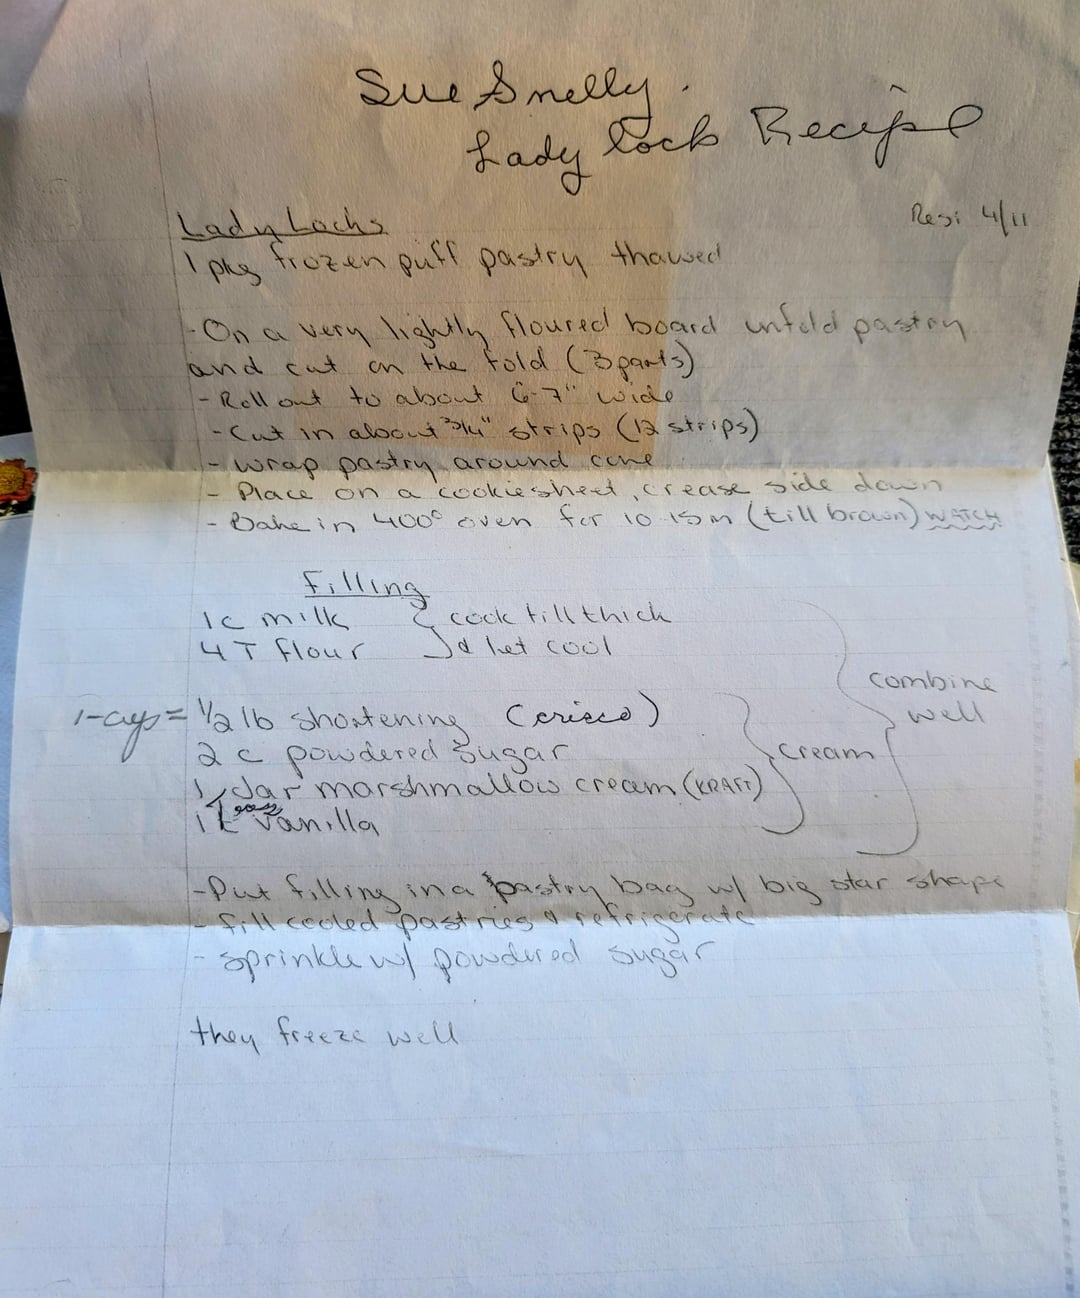 Sue Snelly.
Lady lock Recipe
Lady Locks
4/11
1 pkg frozen puff pastry thawed
- On a very lightly floured board unfold pastry
and cut on the fold (3 parts)
- Roll out to about 6-7" wide
- Cut in about 3/4" strips (12 strips)
- wrap pastry around cone
- Place on a cookie sheet, crease side down
- Bake in 400° oven for 10-15 m (till brown) WATCH
Filling
1 c milk } cook till thick
4 T flour & let cool
1- = 1/2 lb shortening (crisco)
2 c powdered sugar
1 Jar marshmallow cream (KRAFT)
1 t vanilla
cream
combine
well
- Put filling in a pastry bag w/ big star shape
- fill cooled pastries & refrigerate
- sprinkle w/ powdered sugar
they freeze well